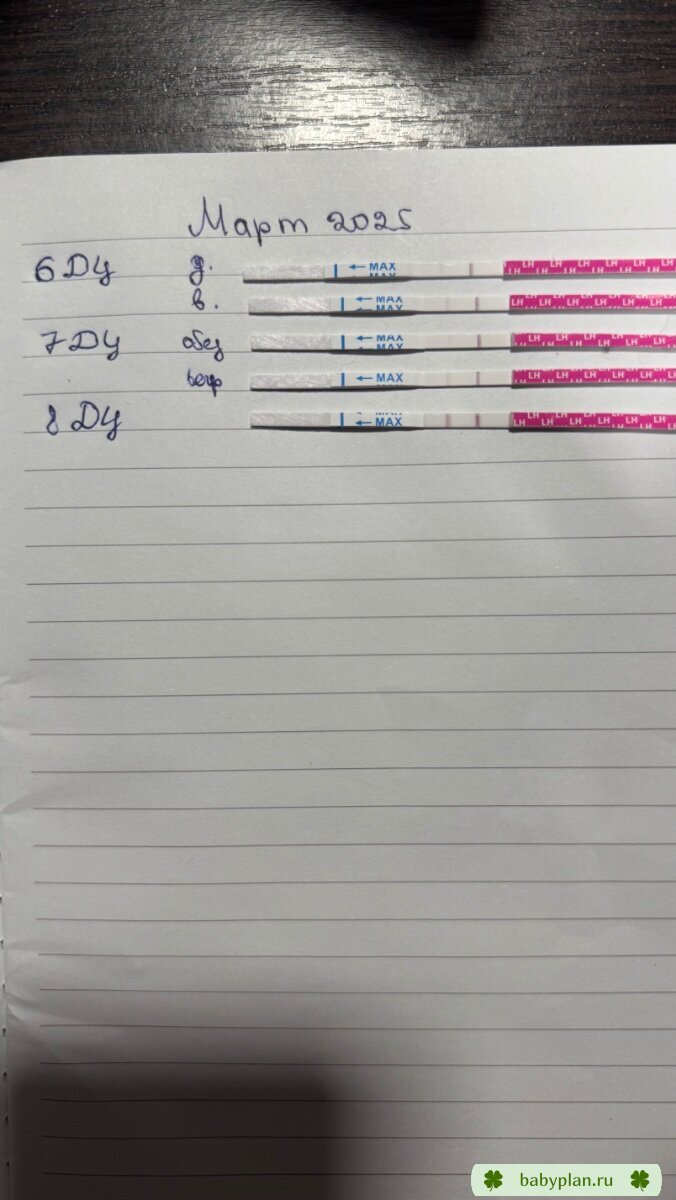 Март 2025
6 ДЦ д. ← MAX LH LH LH LH LH LH
в. ← MAX LH LH LH LH LH LH
7 ДЦ обед ← MAX LH LH LH LH LH LH
вечр ← MAX LH LH LH LH LH LH
8 ДЦ ← MAX LH LH LH LH LH LH
babyplan.ru